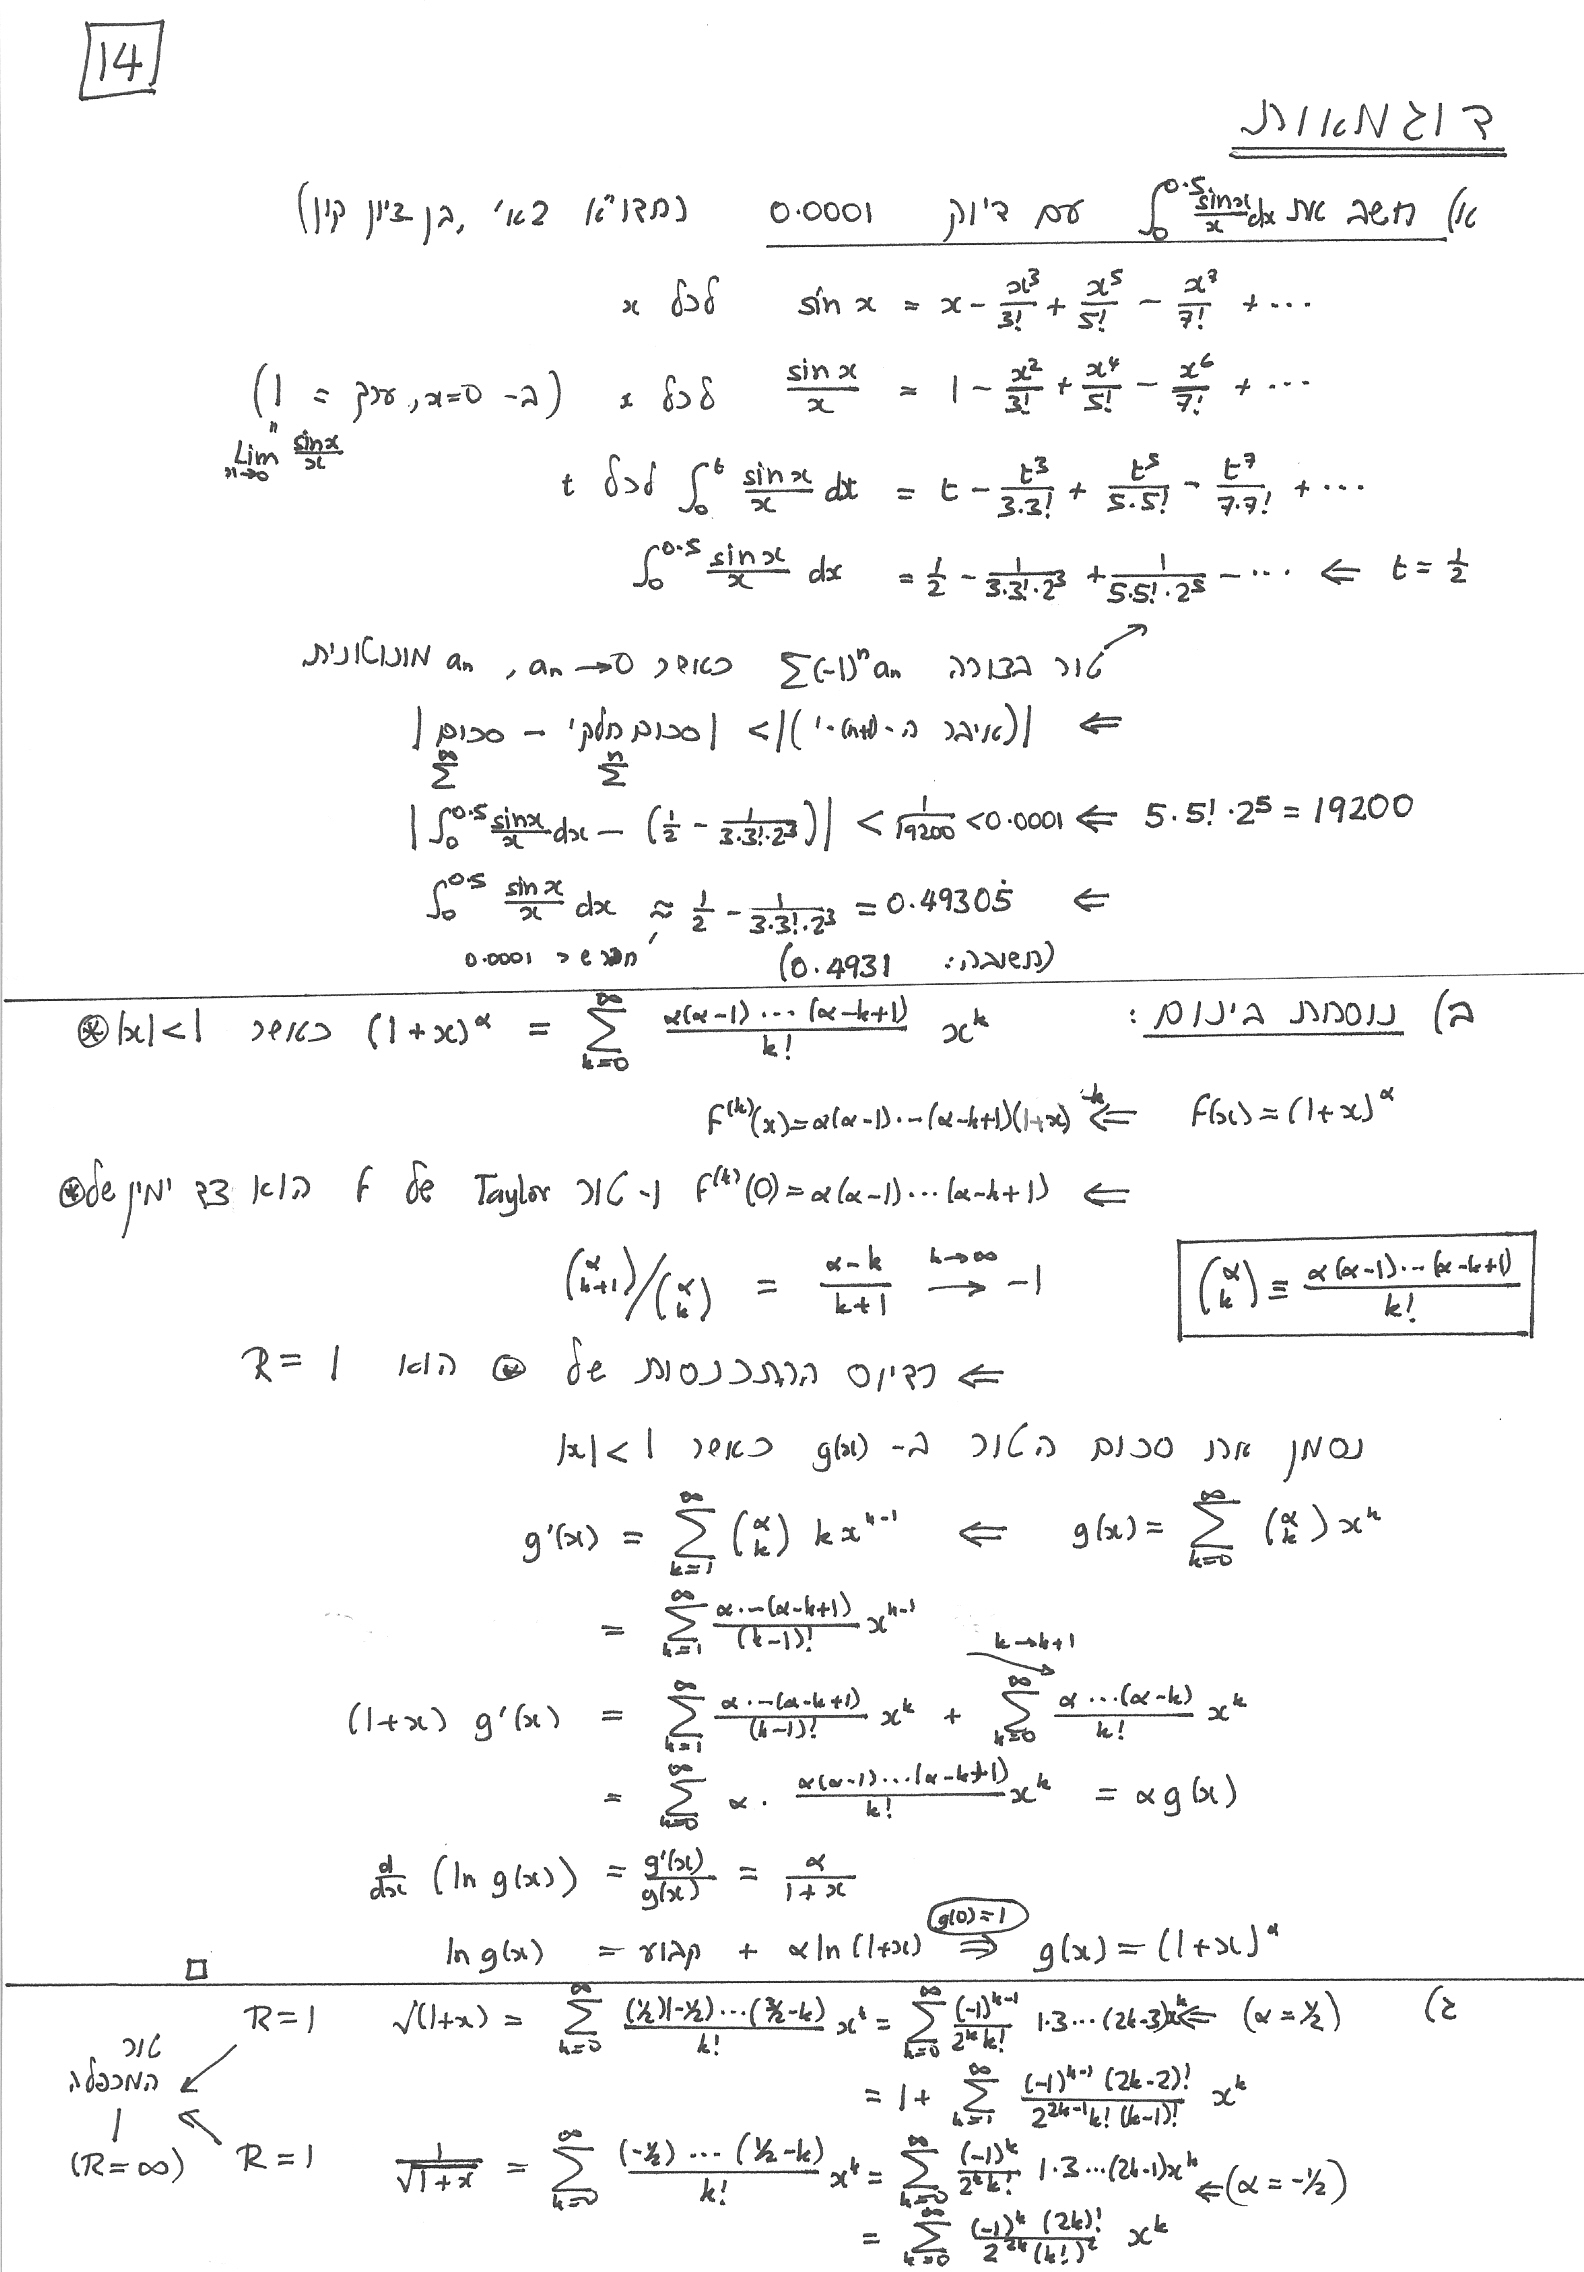 14
דוגמאות
א) חשב את ∫₀^0.5 sin x/x dx עם דיוק 0.0001 (חדו"א 2א', בן ציון קון)
sin x = x - x³/3! + x⁵/5! - x⁷/7! + ... לכל x
sin x/x = 1 - x²/3! + x⁴/5! - x⁶/7! + ... לכל x (ב- x=0, ערך = 1)
" Lim_{x→0} sin x/x
∫₀^t sin x/x dx = t - t³/3·3! + t⁵/5·5! - t⁷/7·7! + ... לכל t
t = 1/2 ⇐ ∫₀^0.5 sin x/x dx = 1/2 - 1/3·3!·2³ + 1/5·5!·2⁵ - ...
טור בצורה Σ(-1)ⁿaₙ כאשר aₙ→0, aₙ מונוטונית
⇐ |סכום - סכום חלקי| < |(איבר ה-(n+1)-י)|
Σ^∞ Σ^n
5·5!·2⁵ = 19200 ⇒ |∫₀^0.5 sin x/x dx - (1/2 - 1/3·3!·2³)| < 1/19200 < 0.0001
⇐ ∫₀^0.5 sin x/x dx ≈ 1/2 - 1/3·3!·2³ = 0.49305̇
0.0001 (תשובה: 0.4931)
ב) נוסחת בינום: (1+x)^α = Σ_{k=0}^∞ α(α-1)...(α-k+1)/k! x^k כאשר |x|<1 ⊛
F(x) = (1+x)^α ⇐ F^(k)(x) = α(α-1)...(α-k+1)(1+x)^-k
⇐ F^(k)(0) = α(α-1)...(α-k+1) ו- טור Taylor של F הוא צד ימין של ⊛
(α k) ≡ α(α-1)...(α-k+1)/k! (α k+1)/(α k) = α-k/k+1 →^{k→∞} -1
⇐ רדיוס ההתכנסות של ⊛ הוא R = 1
נסמן את סכום הטור ב- g(x) כאשר |x|<1
g(x) = Σ_{k=0}^∞ (α k) x^k ⇐ g'(x) = Σ_{k=1}^∞ (α k) k x^{k-1}
= Σ_{k=1}^∞ α...(α-k+1)/(k-1)! x^{k-1}
k→k+1
(1+x) g'(x) = Σ_{k=1}^∞ α...(α-k+1)/(k-1)! x^k + Σ_{k=0}^∞ α...(α-k)/k! x^k
= Σ_{k=0}^∞ α · α(α-1)...(α-k+1)/k! x^k = α g(x)
d/dx (ln g(x)) = g'(x)/g(x) = α/1+x
ln g(x) = קבוע + α ln(1+x) ⇒ (g(0)=1) g(x) = (1+x)^α □
ג) (α = ½) ⇒ √(1+x) = Σ_{k=0}^∞ (½)(-½)...(3/2-k)/k! x^k = Σ_{k=0}^∞ (-1)^{k-1}/2^k k! 1·3...(2k-3)x^k R=1
= 1 + Σ_{k=1}^∞ (-1)^{k-1} (2k-2)!/2^{2k-1} k! (k-1)! x^k
טור
המכפלה
(R=∞)
(α = -½) ⇒ 1/√(1+x) = Σ_{k=0}^∞ (-½)...(½-k)/k! x^k = Σ_{k=0}^∞ (-1)^k/2^k k! 1·3...(2k-1)x^k R=1
= Σ_{k=0}^∞ (-1)^k (2k)!/2^{2k} (k!)² x^k